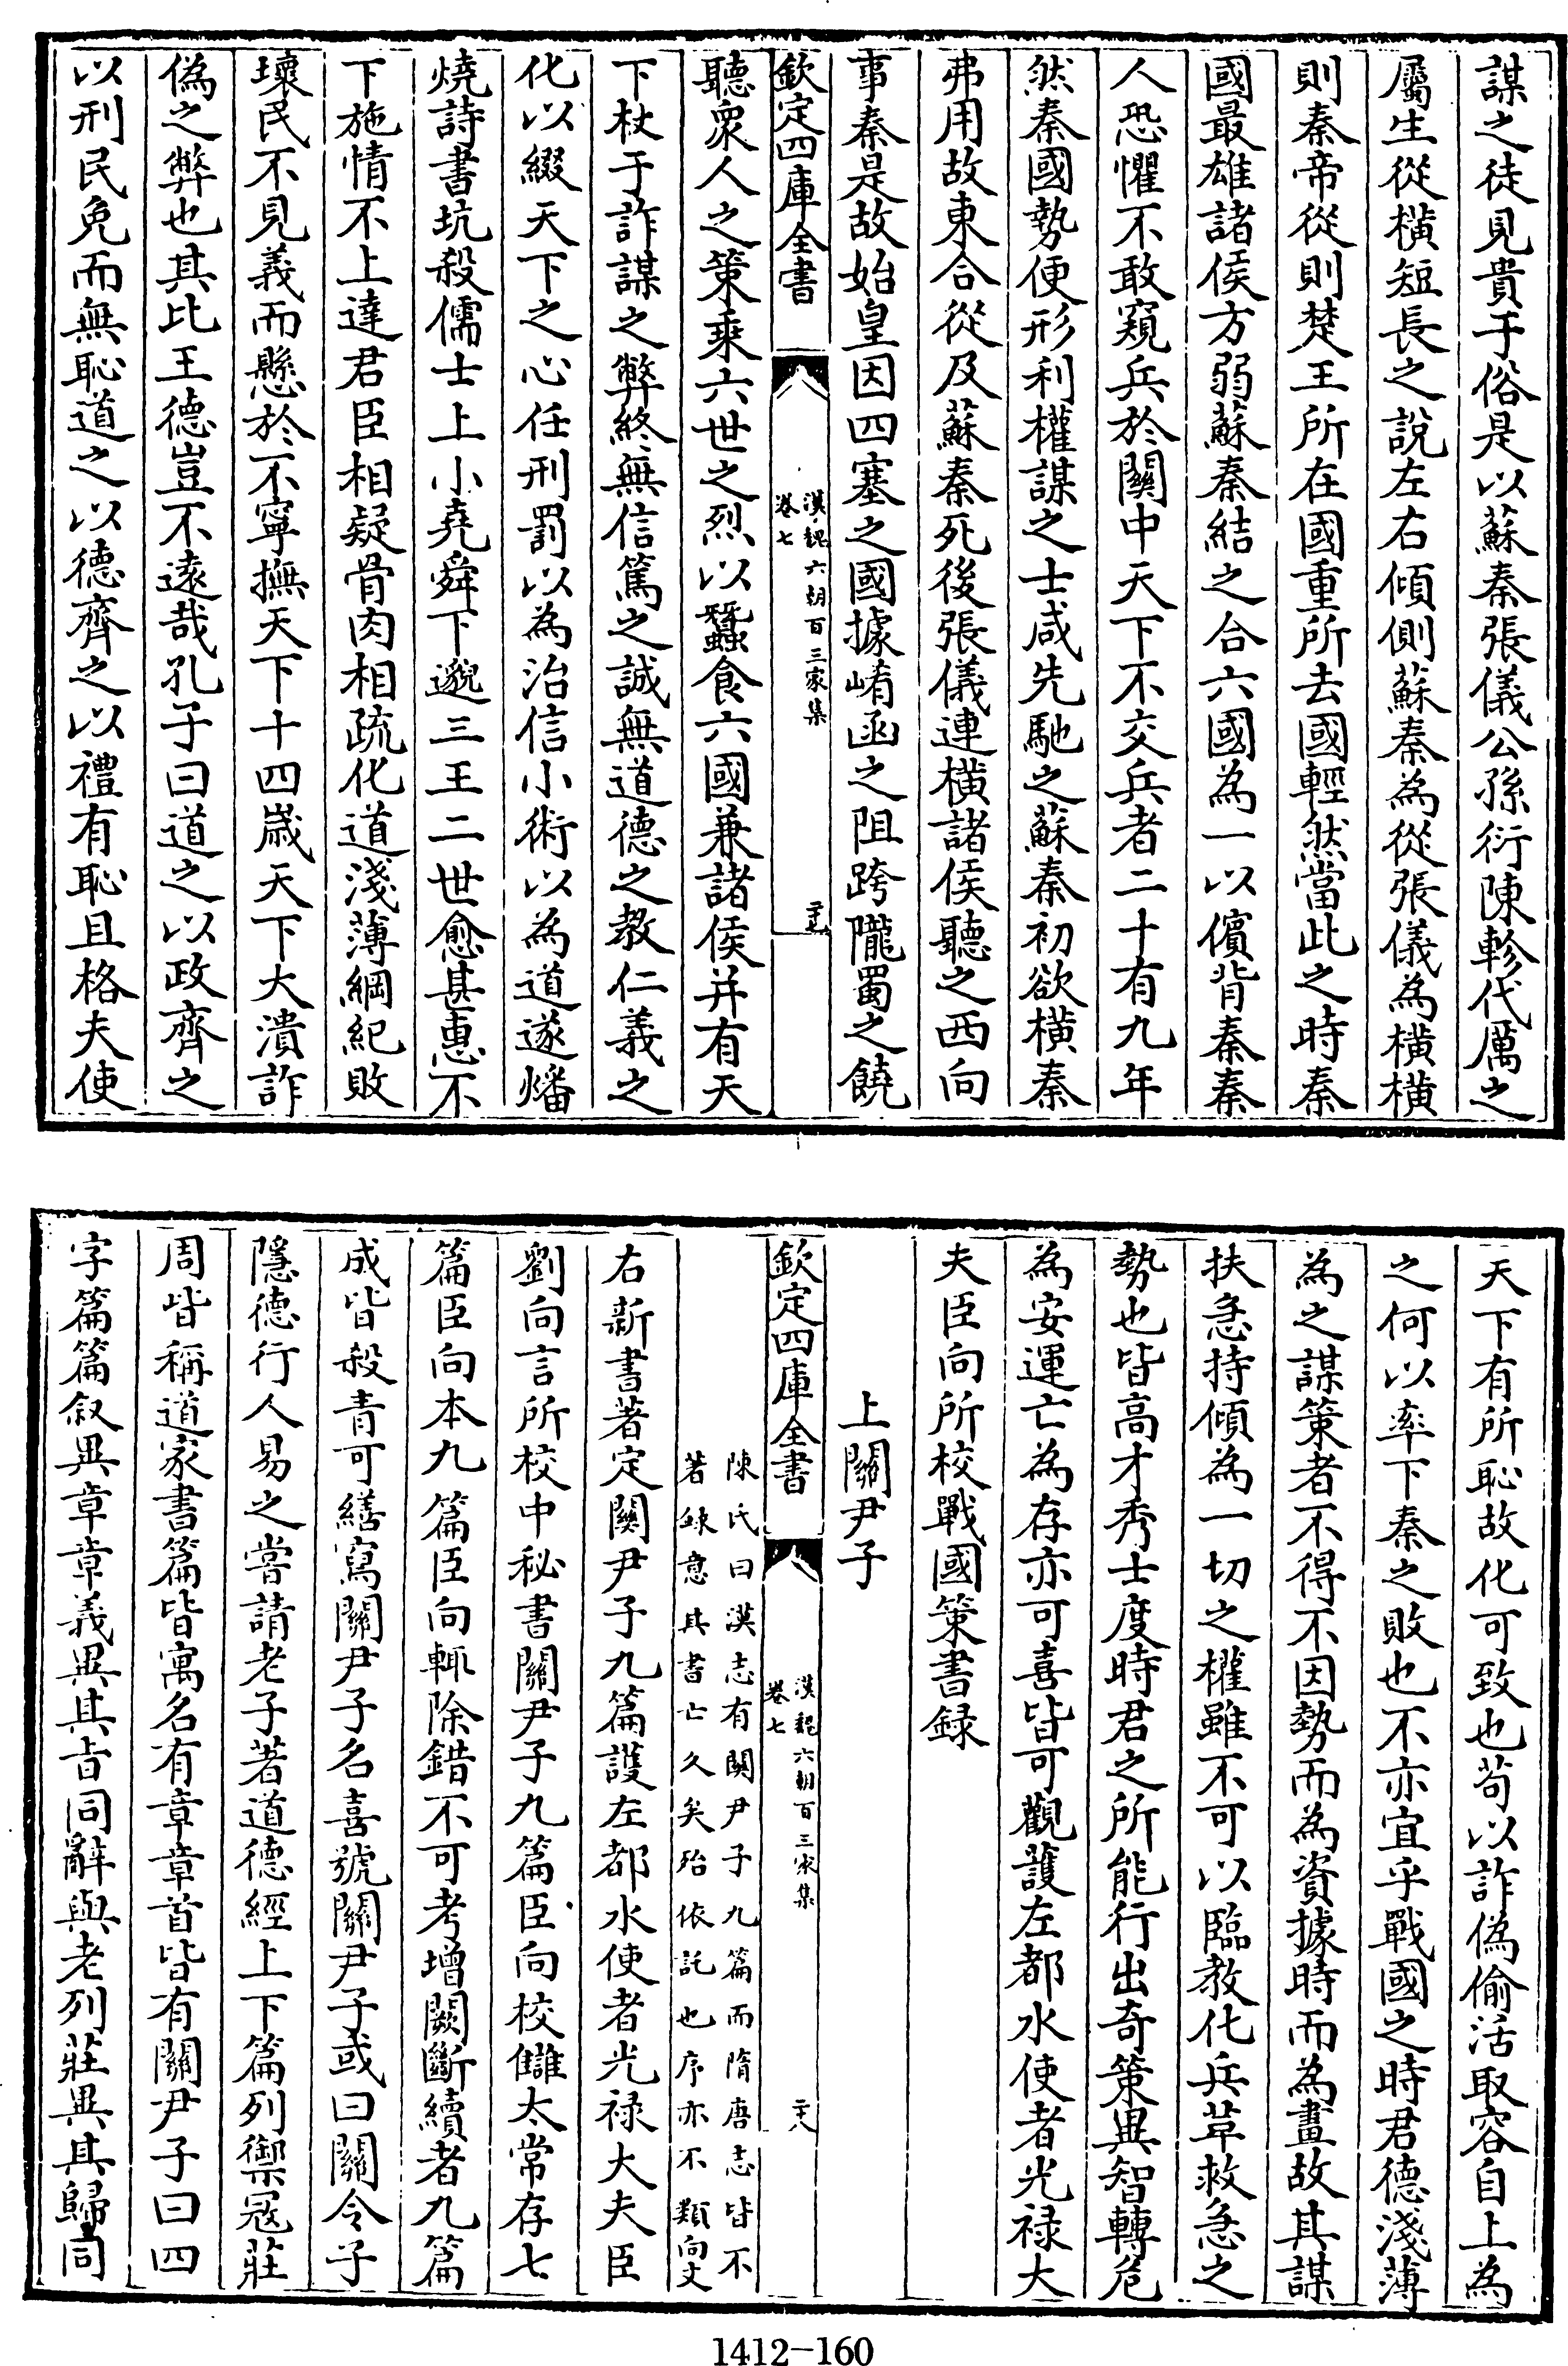 謀之徒見貴于俗是以蘇秦張儀公孫衍陳軫代厲之
屬生從橫短長之說左右傾側蘇秦為從張儀為橫橫
則秦帝從則楚王所在國重所去國輕然當此之時秦
國最雄諸侯方弱蘇秦結之合六國為一以儐背秦秦
人恐懼不敢窺兵於關中天下不交兵者二十有九年
然秦國勢便形利權謀之士咸先馳之蘇秦初欲橫秦
弗用故東合從及蘇秦死後張儀連橫諸侯聽之西向
事秦是故始皇因四塞之國據崤函之阻跨隴蜀之饒
欽定四庫全書
漢魏六朝百三家集
卷七
二十七
聽衆人之策乘六世之烈以蠶食六國兼諸侯并有天
下杖于詐謀之弊終無信篤之誠無道德之教仁義之
化以綴天下之心任刑罰以為治信小術以為道遂燔
燒詩書坑殺儒士上小堯舜下邈三王二世愈甚惠不
下施情不上達君臣相疑骨肉相疏化道淺薄綱紀敗
壞民不見義而懸於不寧撫天下十四歲天下大潰詐
偽之弊也其比王德豈不遠哉孔子曰道之以政齊之
以刑民免而無恥道之以德齊之以禮有恥且格夫使
天下有所恥故化可致也苟以詐偽偷活取容自上為
之何以率下秦之敗也不亦宜乎戰國之時君德淺薄
為之謀策者不得不因勢而為資據時而為畫故其謀
扶急持傾為一切之權雖不可以臨教化兵革救急之
勢也皆高才秀士度時君之所能行出奇策異智轉危
為安運亡為存亦可喜皆可觀護左都水使者光祿大
夫臣向所校戰國策書録
上關尹子
欽定四庫全書
漢魏六朝百三家集
卷七
二十八
陳氏曰漢志有關尹子九篇而隋唐志皆不
著録意其書亡久矣殆依託也序亦不類向文
右新書著定關尹子九篇護左都水使者光祿大夫臣
劉向言所校中秘書關尹子九篇臣向校讎太常存七
篇臣向本九篇臣向輙除錯不可考增闕斷續者九篇
成皆殺青可繕寫關尹子名喜號關尹子或曰關令子
隱德行人易之嘗請老子著道德經上下篇列禦寇莊
周皆稱道家書篇皆寓名有章章首皆有關尹子曰四
字篇篇叙異章章義異其旨同辭與老列莊異其歸同
1412-160